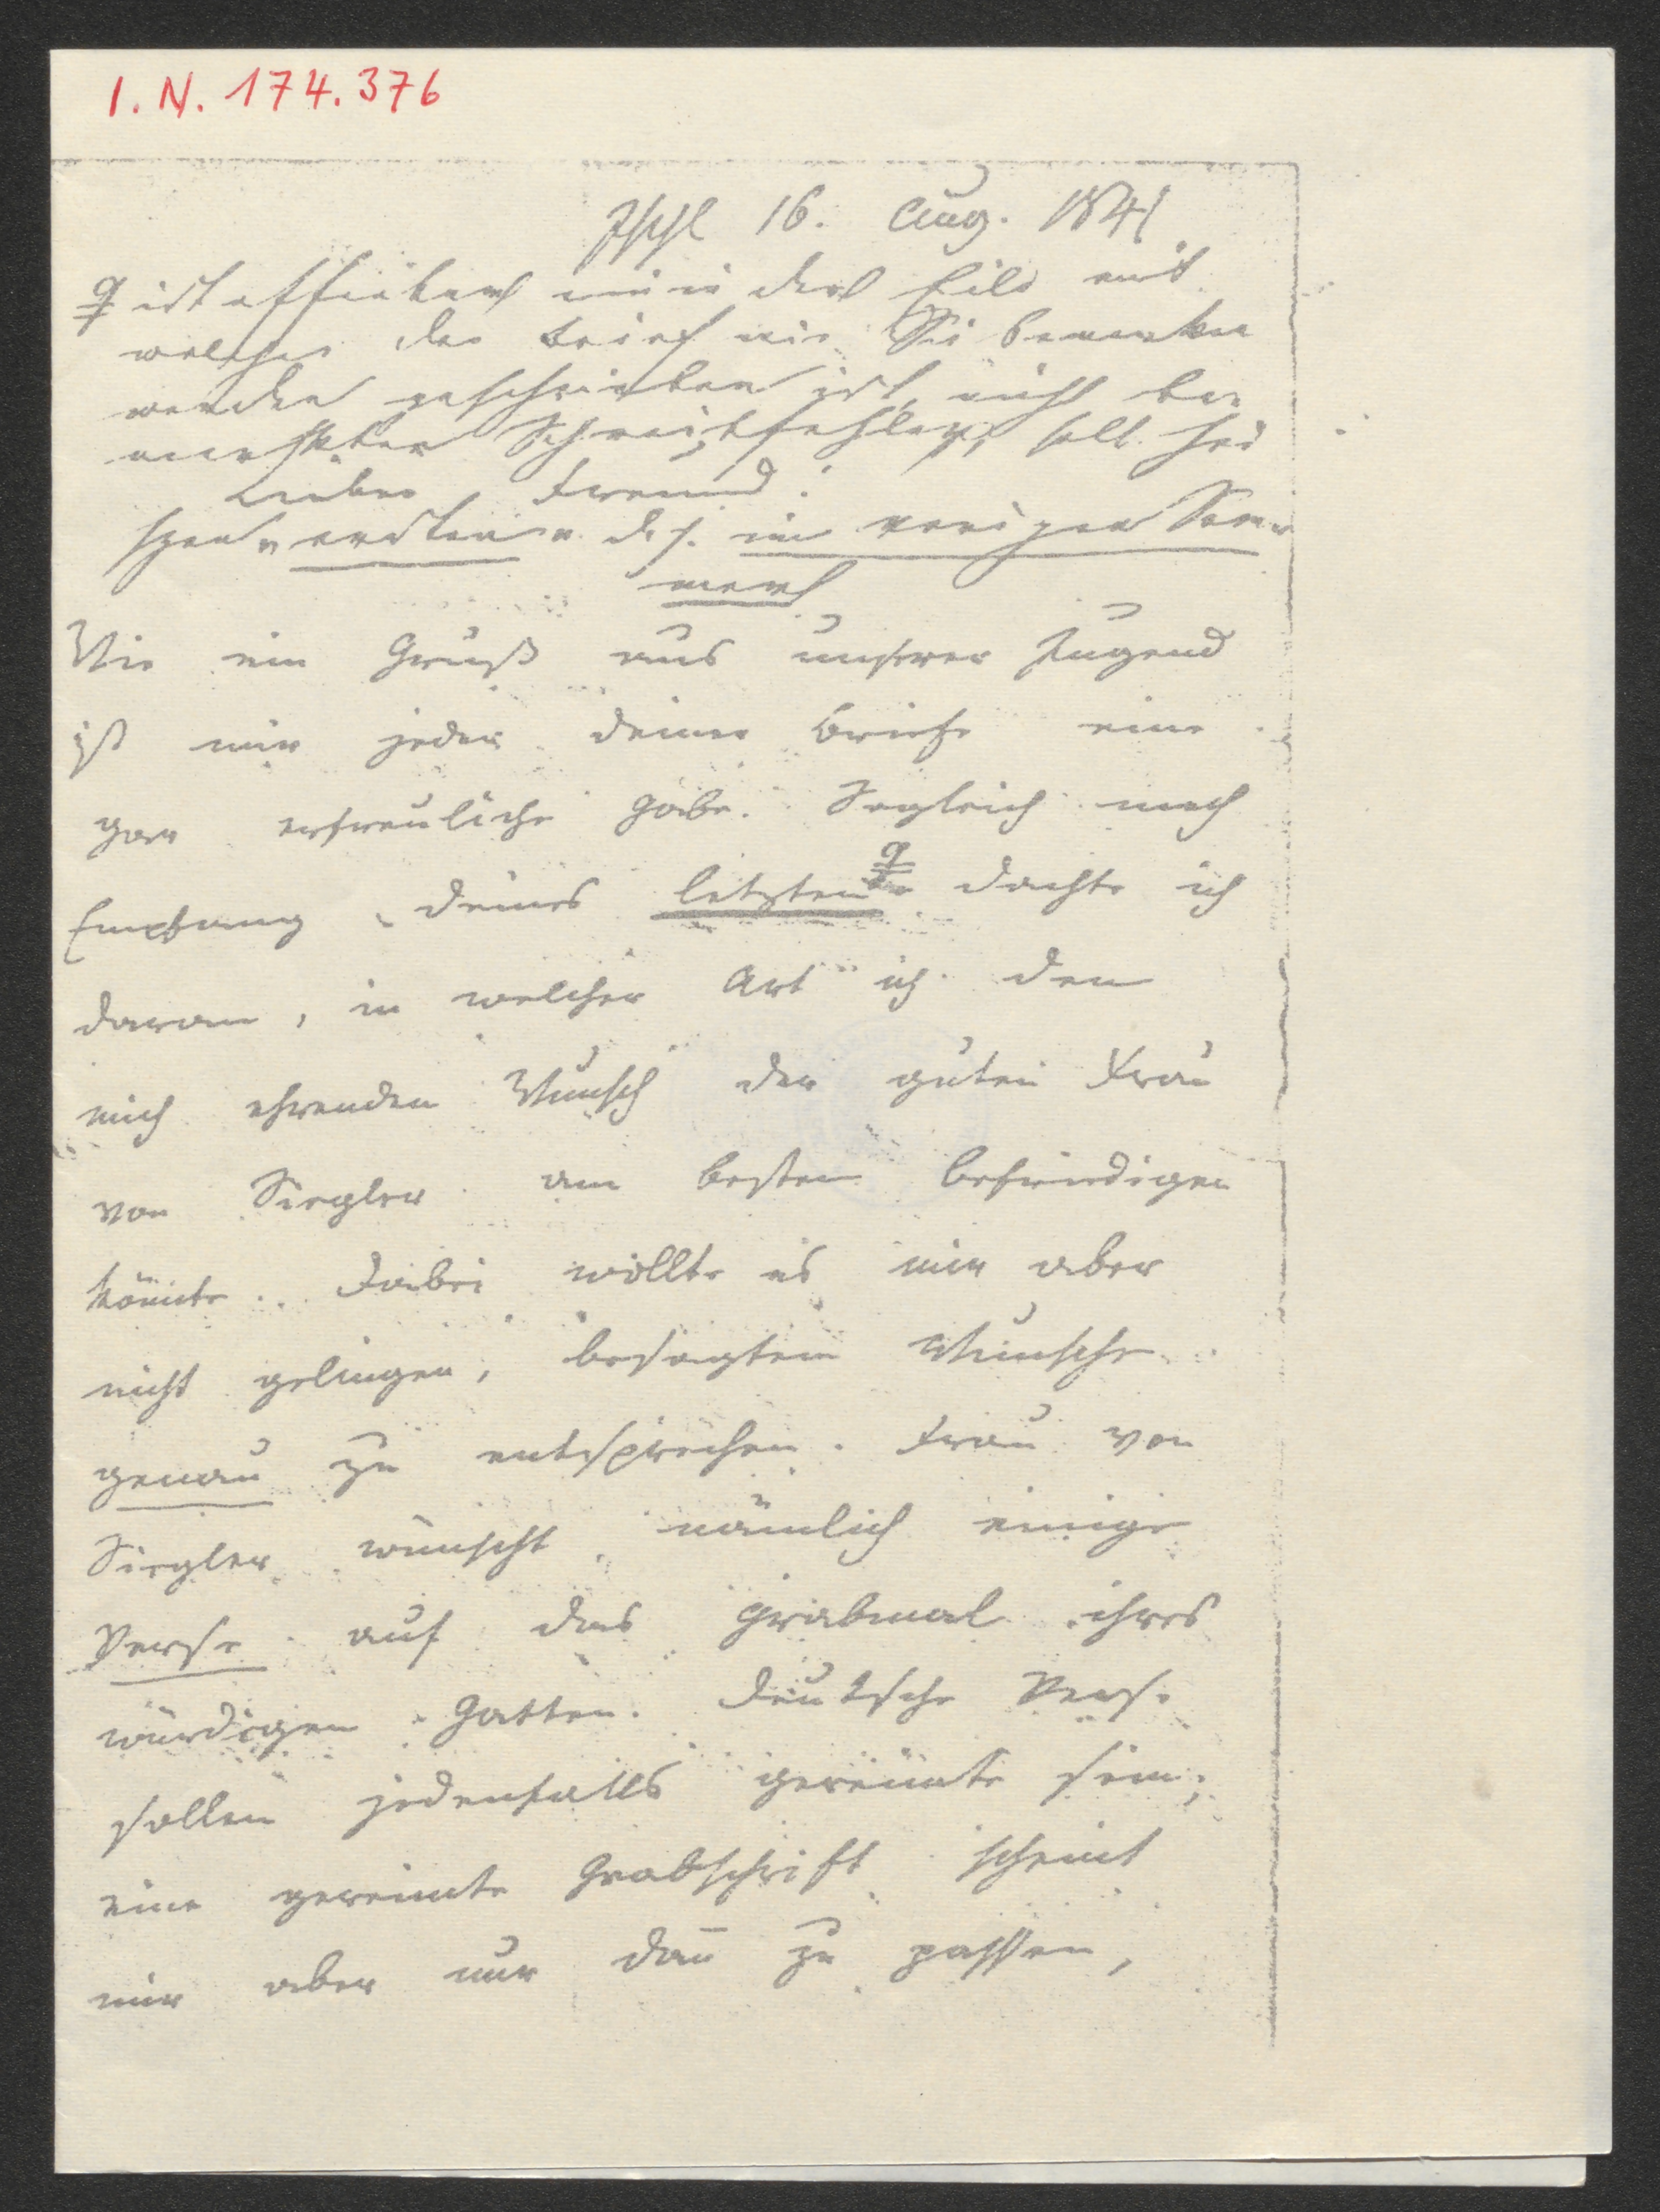 I. N. 174.376
Ischl 16. Aug. 1841
ist offenbar ein in der Eile mit
welcher der Brief wie Sie bemerken
werden geschrieben ist, nicht be-
merkter Schreibfehler, soll
Lieber Freund!
ersten d. h. im vorigen Som-
mer
Wie ein Gruß aus unsrer Jugend
ist mir jeder deiner Briefe eine
gar erfreuliche Gabe. Sogleich nach
Empfang deines letzten dachte ich
daran, in welcher Art ich den
mich ehrenden Wunsch der guten Frau
von Siegler am besten befriedigen
könnte. Dabei wollte es mir aber
nicht gelingen, besagtem Wunsche
genau zu entsprechen. Frau von
Siegler wünscht nämlich einige
Verse auf das Grabmal ihres
würdigen Gatten. Deutsche Verse
sollen jedenfalls gereimte sein;
eine gereimte Grabschrift scheint
mir aber nur dañ zu passen,